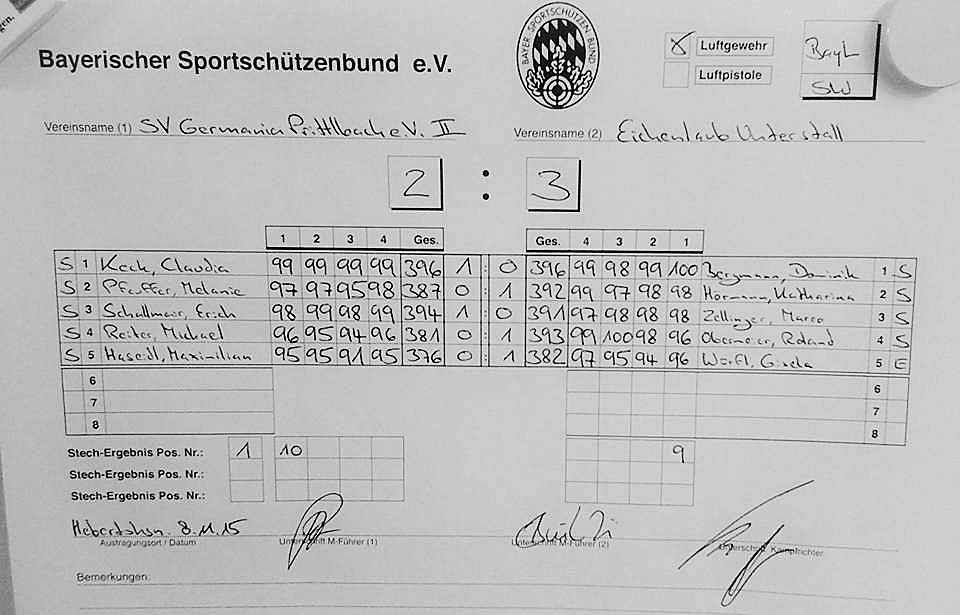 gen.
Bayerischer Sportschützenbund e.V.
BAYER. SPORTSCHÜTZEN-BUND
X Luftgewehr
Luftpistole
BayL
SW
Vereinsname (1) SV Germania Prittlbach e.V. II
Vereinsname (2) Eichenlaub Unterstall
2 : 3
1 2 3 4 Ges. Ges. 4 3 2 1
S 1 Keck, Claudia 99 99 99 99 396 1 : 0 396 99 98 99 100 Bergmann, Dominik 1 S
S 2 Pfeuffer, Melanie 97 97 95 98 387 0 : 1 392 99 97 98 98 Hörmann, Katharina 2 S
S 3 Schallmair, Erich 98 99 98 99 394 1 : 0 391 97 98 98 98 Zellinger, Marco 3 S
S 4 Reiter, Michael 96 95 94 96 381 0 : 1 393 99 100 98 96 Obermeier, Roland 4 S
S 5 Haseidl, Maximilian 95 95 91 95 376 0 : 1 382 97 95 94 96 Wörfl, Gisela 5 E
6 6
7 7
8 8
Stech-Ergebnis Pos. Nr.: 1 10 9
Stech-Ergebnis Pos. Nr.:
Stech-Ergebnis Pos. Nr.:
8.11.15
Austragungsort / Datum
Unterschrift M-Führer (1)
Unterschrift M-Führer (2)
Unterschrift Kampfrichter
Bemerkungen: